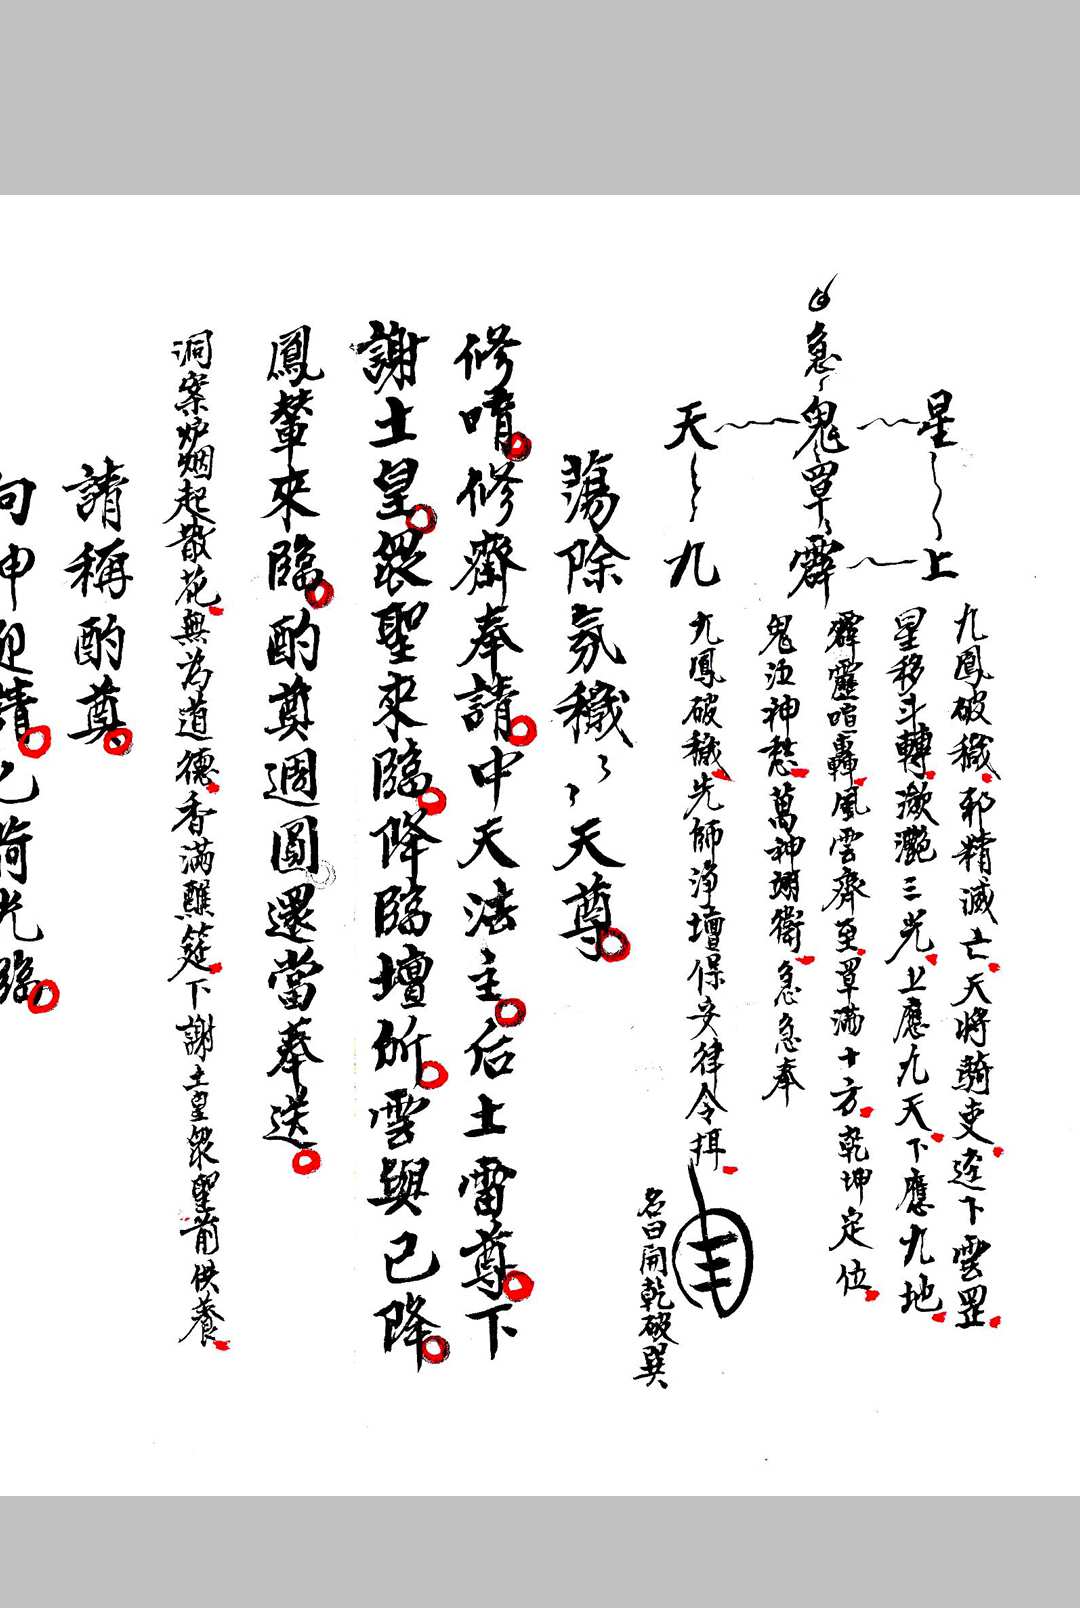 急
星 鬼 天
罩
上 霹 九
九鳳破穢邪精滅亡天將騎吏逵下雲罡
星移斗轉瀲灔三光上應九天下應九地
霹靂喧轟風雲齊至罩滿十方乾坤定位
鬼泣神愁萬神翊衛急急奉
九鳳破穢先師淨壇保安律令揖
名曰開乾破巽
蕩除氛穢ㄟㄟ天尊
修嘖修齋奉請中天法主后土雷尊下
謝土皇眾聖來臨降臨壇所雲輿已降
鳳輦來臨酌奠週圓還當奉送
洞案炉烟起散花無為道德香滿醮筵下謝土皇眾聖前供養
請稱酌尊
向申迎請已荷光臨